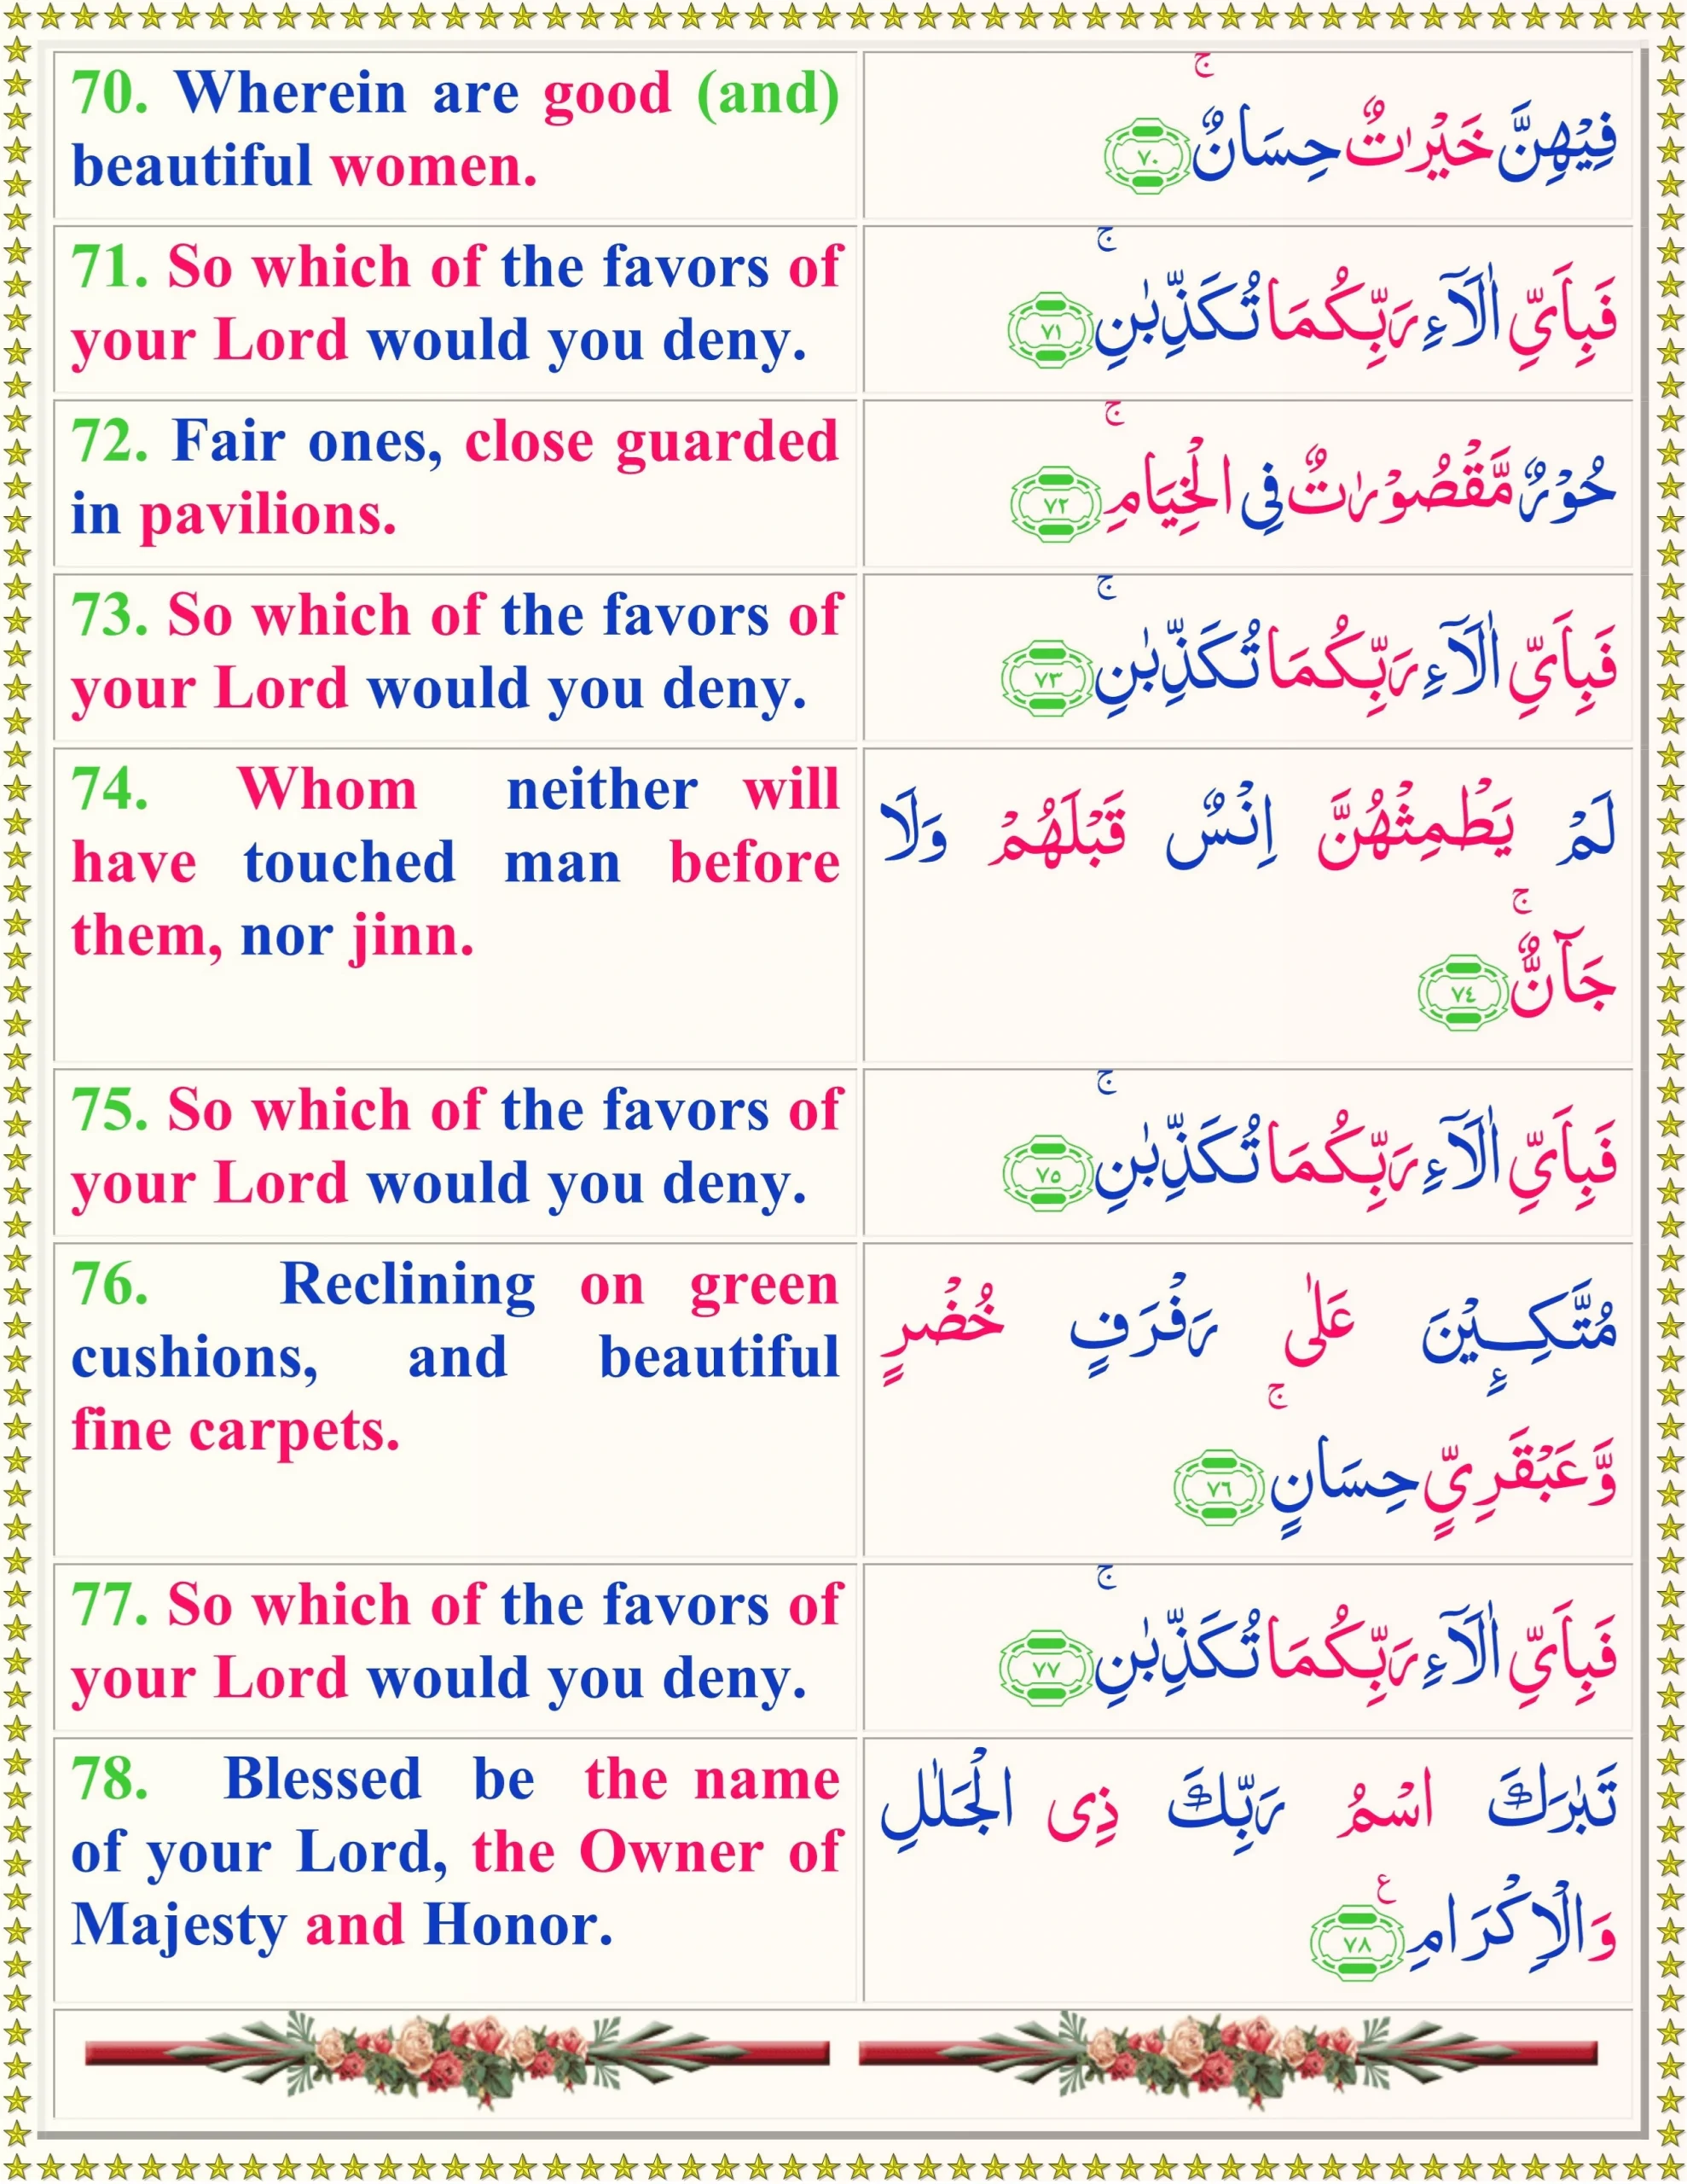 70. Wherein are good (and)
beautiful women.
فِيْهِنَّ خَيْرٰتٌ حِسَانٌ ۚ ﴿٧٠﴾
71. So which of the favors of
your Lord would you deny.
فَبِاَىِّ اٰلَآءِ رَبِّكُمَا تُكَذِّبٰنِ ۚ ﴿٧١﴾
72. Fair ones, close guarded
in pavilions.
حُوْرٌ مَّقْصُوْرٰتٌ فِى الْخِيَامِ ۚ ﴿٧٢﴾
73. So which of the favors of
your Lord would you deny.
فَبِاَىِّ اٰلَآءِ رَبِّكُمَا تُكَذِّبٰنِ ۚ ﴿٧٣﴾
74. Whom neither will
have touched man before
them, nor jinn.
لَمْ يَطْمِثْهُنَّ اِنْسٌ قَبْلَهُمْ وَلَا
جَآنٌّ ۚ ﴿٧٤﴾
75. So which of the favors of
your Lord would you deny.
فَبِاَىِّ اٰلَآءِ رَبِّكُمَا تُكَذِّبٰنِ ۚ ﴿٧٥﴾
76. Reclining on green
cushions, and beautiful
fine carpets.
مُتَّكِـــِٕيْنَ عَلٰى رَفْرَفٍ خُضْرٍ
وَّعَبْقَرِىٍّ حِسَانٍ ۚ ﴿٧٦﴾
77. So which of the favors of
your Lord would you deny.
فَبِاَىِّ اٰلَآءِ رَبِّكُمَا تُكَذِّبٰنِ ۚ ﴿٧٧﴾
78. Blessed be the name
of your Lord, the Owner of
Majesty and Honor.
تَبٰرَكَ اسْمُ رَبِّكَ ذِى الْجَلٰلِ
وَالْاِكْرَامِ ع ﴿٧٨﴾